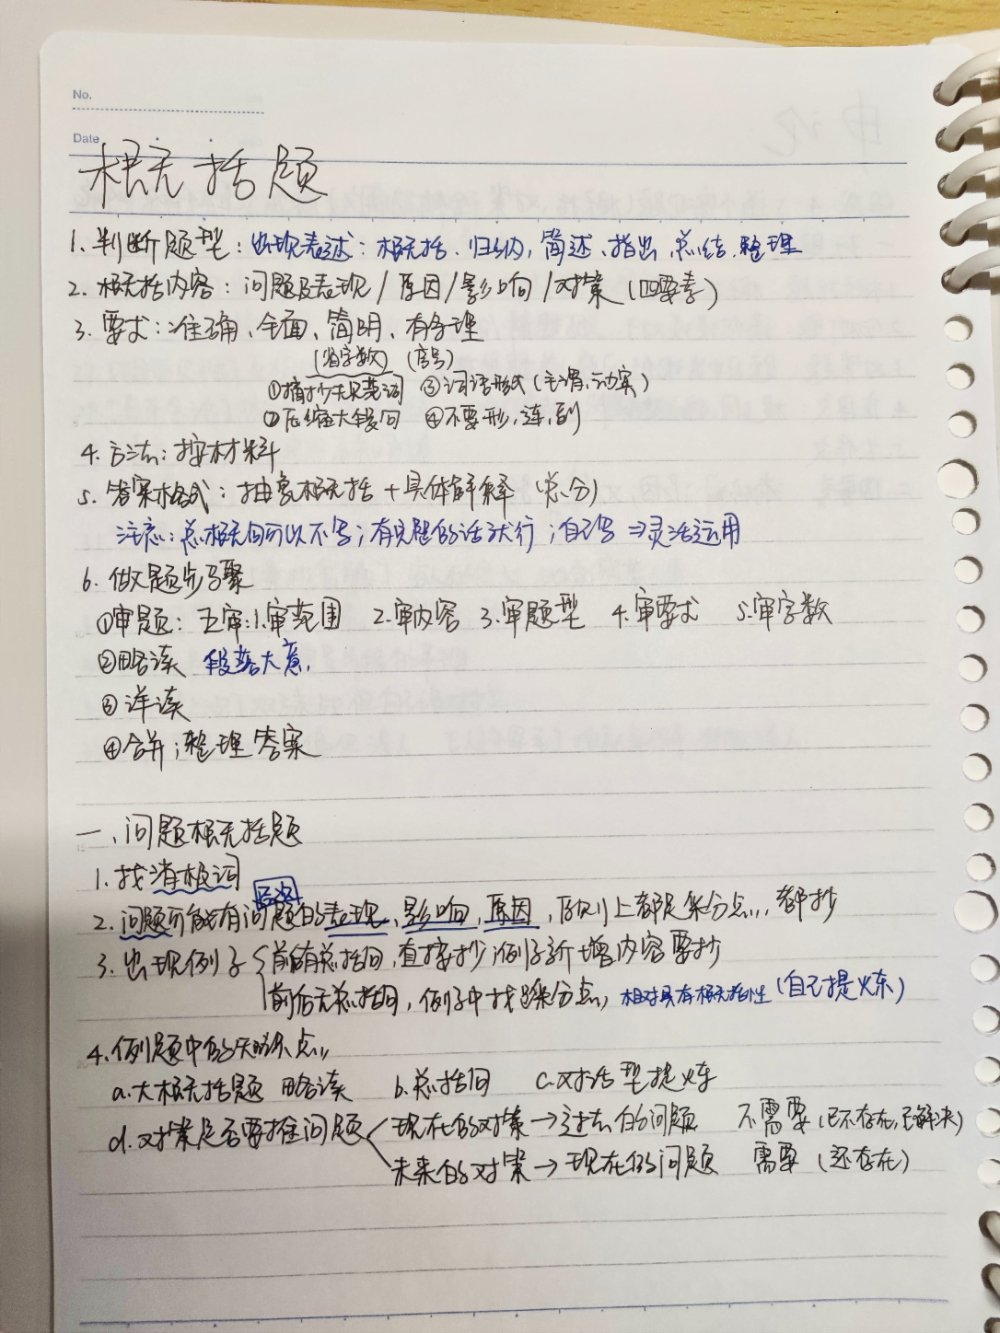 No.
Date
概括题
1. 判断题型：出现表述：概括、归纳，简述、指出、总结、整理
2. 概括内容：问题及表现/原因/影响/对策（四要素）
3. 要求：准确、全面、简明、有条理
（省字数）（序号）
①摘抄关键词 ③词语形式（主谓、动宾）
②压缩大段句 ④不要形，连，副
4. 方法：按材料
5. 答案格式：抽象概括+具体解释（总分）
注意：总概句可以不写；有只是的话就行；自己写⇒灵活运用
6. 做题步骤
①审题：五审：1.审范围 2.审内容 3.审题型 4.审要求 5.审字数
②略读 段落大意，
③详读
④合并；整理答案
一、问题概括题
1. 找消极词
2. 问题可能有问题的表现、影响，原因，原则上都是采分点，都抄
3. 出现例子 前有总括句，直接抄；例子新增内容要抄
前后无总括句，例子中找踩分点，相对具有概括性（自己提炼）
4. 例题中的知识点
a.大概括题 略读 b.总括句 c.对话型提炼
d.对策是否要推问题 现在的对策→过去的问题 不需要（已不存在，已解决）
未来的对策→现在的问题 需要（还存在）